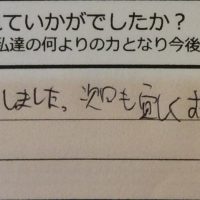 れていかがでしたか？
私達の何よりの力となり今後
しました。次回も宜しくお